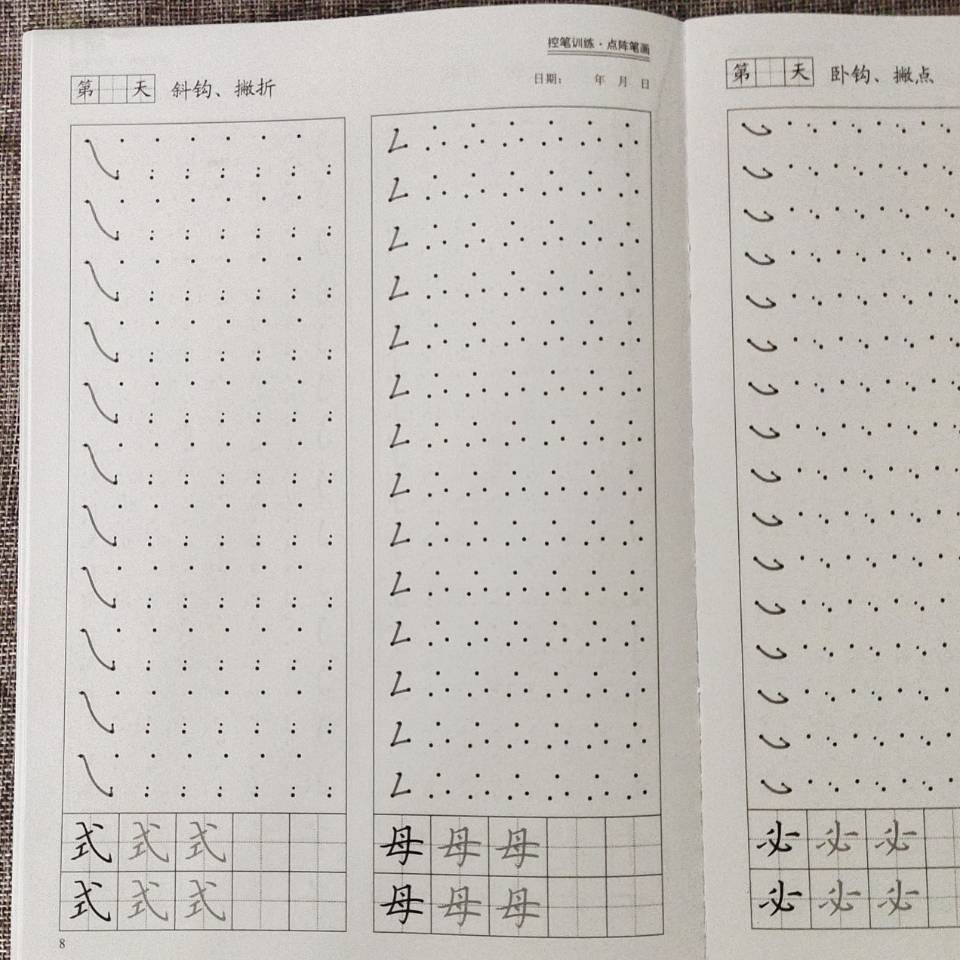 控笔训练·点阵笔画
第 天 斜钩、撇折
日期： 年 月 日
式 式 式
式 式 式
母 母 母
母 母 母
8
第 天 卧钩、撇点
必 必 必
必 必 必